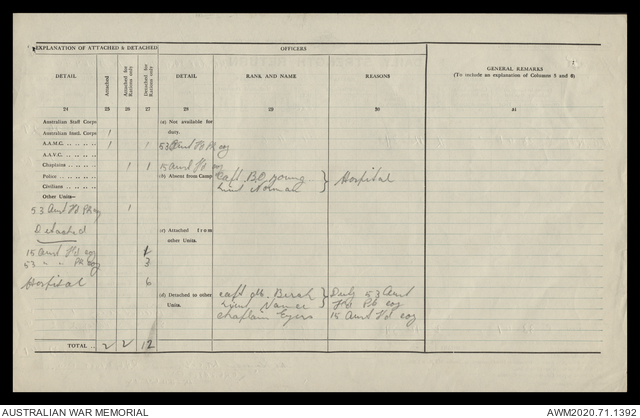 EXPLANATION OF ATTACHED & DETACHED
OFFICERS
GENERAL REMARKS
(To include an explanation of Columns 5 and 6)
DETAIL
Attached
Attached for Rations only
Detached for Rations only
DETAIL
RANK AND NAME
REASONS
24 25 26 27 28 29 30 31
Australian Staff Corps
Australian Instl. Corps 1
A.A.M.C. 1 1
A.A.V.C.
Chaplains 1 1
Police
Civilians
Other Units—
53 Aust Fd Pk coy 1
Detached
15 Aust Fd coy
53 " " Pk coy 3
Hospital 6
TOTAL 2 2 12
(a) Not available for duty.
53 Aust Fd Pk coy
15 Aust Fd coy
(b) Absent from Camp
Capt B.O. Young } Hospital
Lieut Norman
(c) Attached from other Units.
(d) Detached to other Units.
Capt Birch } Duty 53 Aust
Lieut Fd Pk coy
Chaplain Eyers 15 Aust Fd coy
AUSTRALIAN WAR MEMORIAL
AWM2020.71.1392